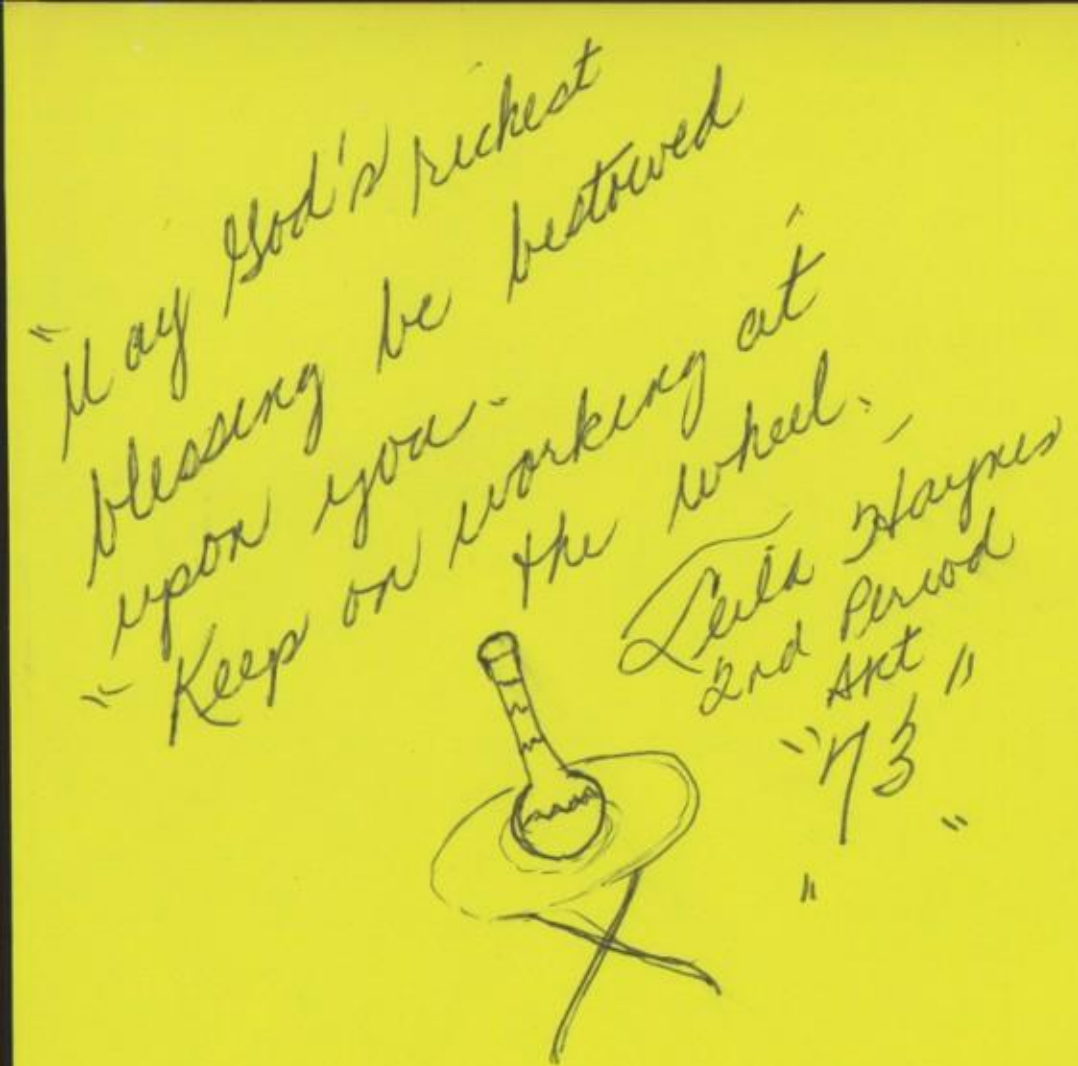 "May God's richest
blessing be bestowed
upon you.
"Keep on working at
the wheel.
Leila Haynes
2nd Period
Art
"73"